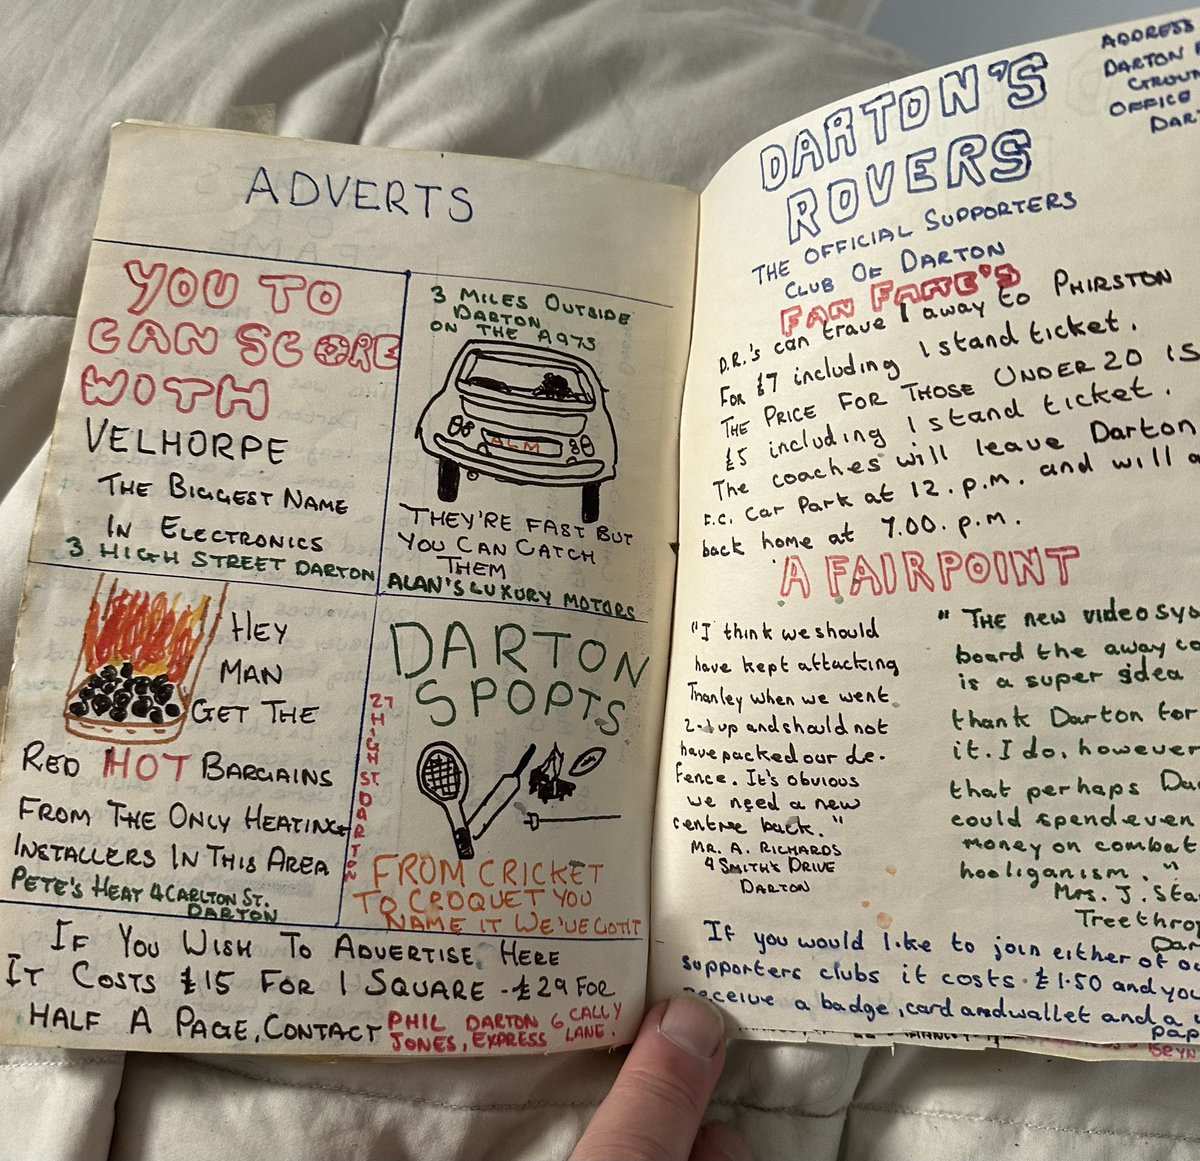 ADVERTS
YOU TO
CAN SCORE
WITH
VELHORPE
THE BIGGEST NAME
IN ELECTRONICS
3 HIGH STREET DARTON
3 MILES OUTSIDE
DARTON
ON THE A975
ALM
THEY'RE FAST BUT
YOU CAN CATCH
THEM
ALAN'S LUXURY MOTORS
HEY
MAN
GET THE
RED HOT BARGAINS
FROM THE ONLY HEATING
INSTALLERS IN THIS AREA
PETE'S HEAT 4 CARLTON ST.
DARTON
DARTON
SPOPTS
27 HIGH ST. DARTON
FROM CRICKET
TO CROQUET YOU
NAME IT WE'VE GOT IT
IF YOU WISH TO ADVERTISE HERE
IT COSTS £15 FOR 1 SQUARE - £29 FOR
HALF A PAGE, CONTACT PHIL JONES, DARTON EXPRESS 6 CALLY LANE.
DARTON'S
ROVERS
THE OFFICIAL SUPPORTERS
CLUB OF DARTON
ADDRESS
DARTON
OFFICE
FAN FARE'S
D.R.'s can travel away to PHIRSTON
FOR £7 including 1 stand ticket.
THE PRICE FOR THOSE UNDER 20 IS
£5 including 1 stand ticket.
The coaches will leave Darton
F.C. Car Park at 12.p.m. and will
back home at 7.00.p.m.
A FAIR POINT
"I think we should
have kept attacking
Thanley when we went
2-1 up and should not
have packed our de-
fence. It's obvious
we need a new
centre back."
MR. A. RICHARDS
9 SMITH'S DRIVE
DARTON
"THE new video
board the away
is a super idea
thank Darton for
it. I do, however
that perhaps
could spend even
money on combat
hooliganism."
Mrs. J.
If you would like to join either of
supporters clubs it costs £1.50 and you
receive a badge, card and wallet and a